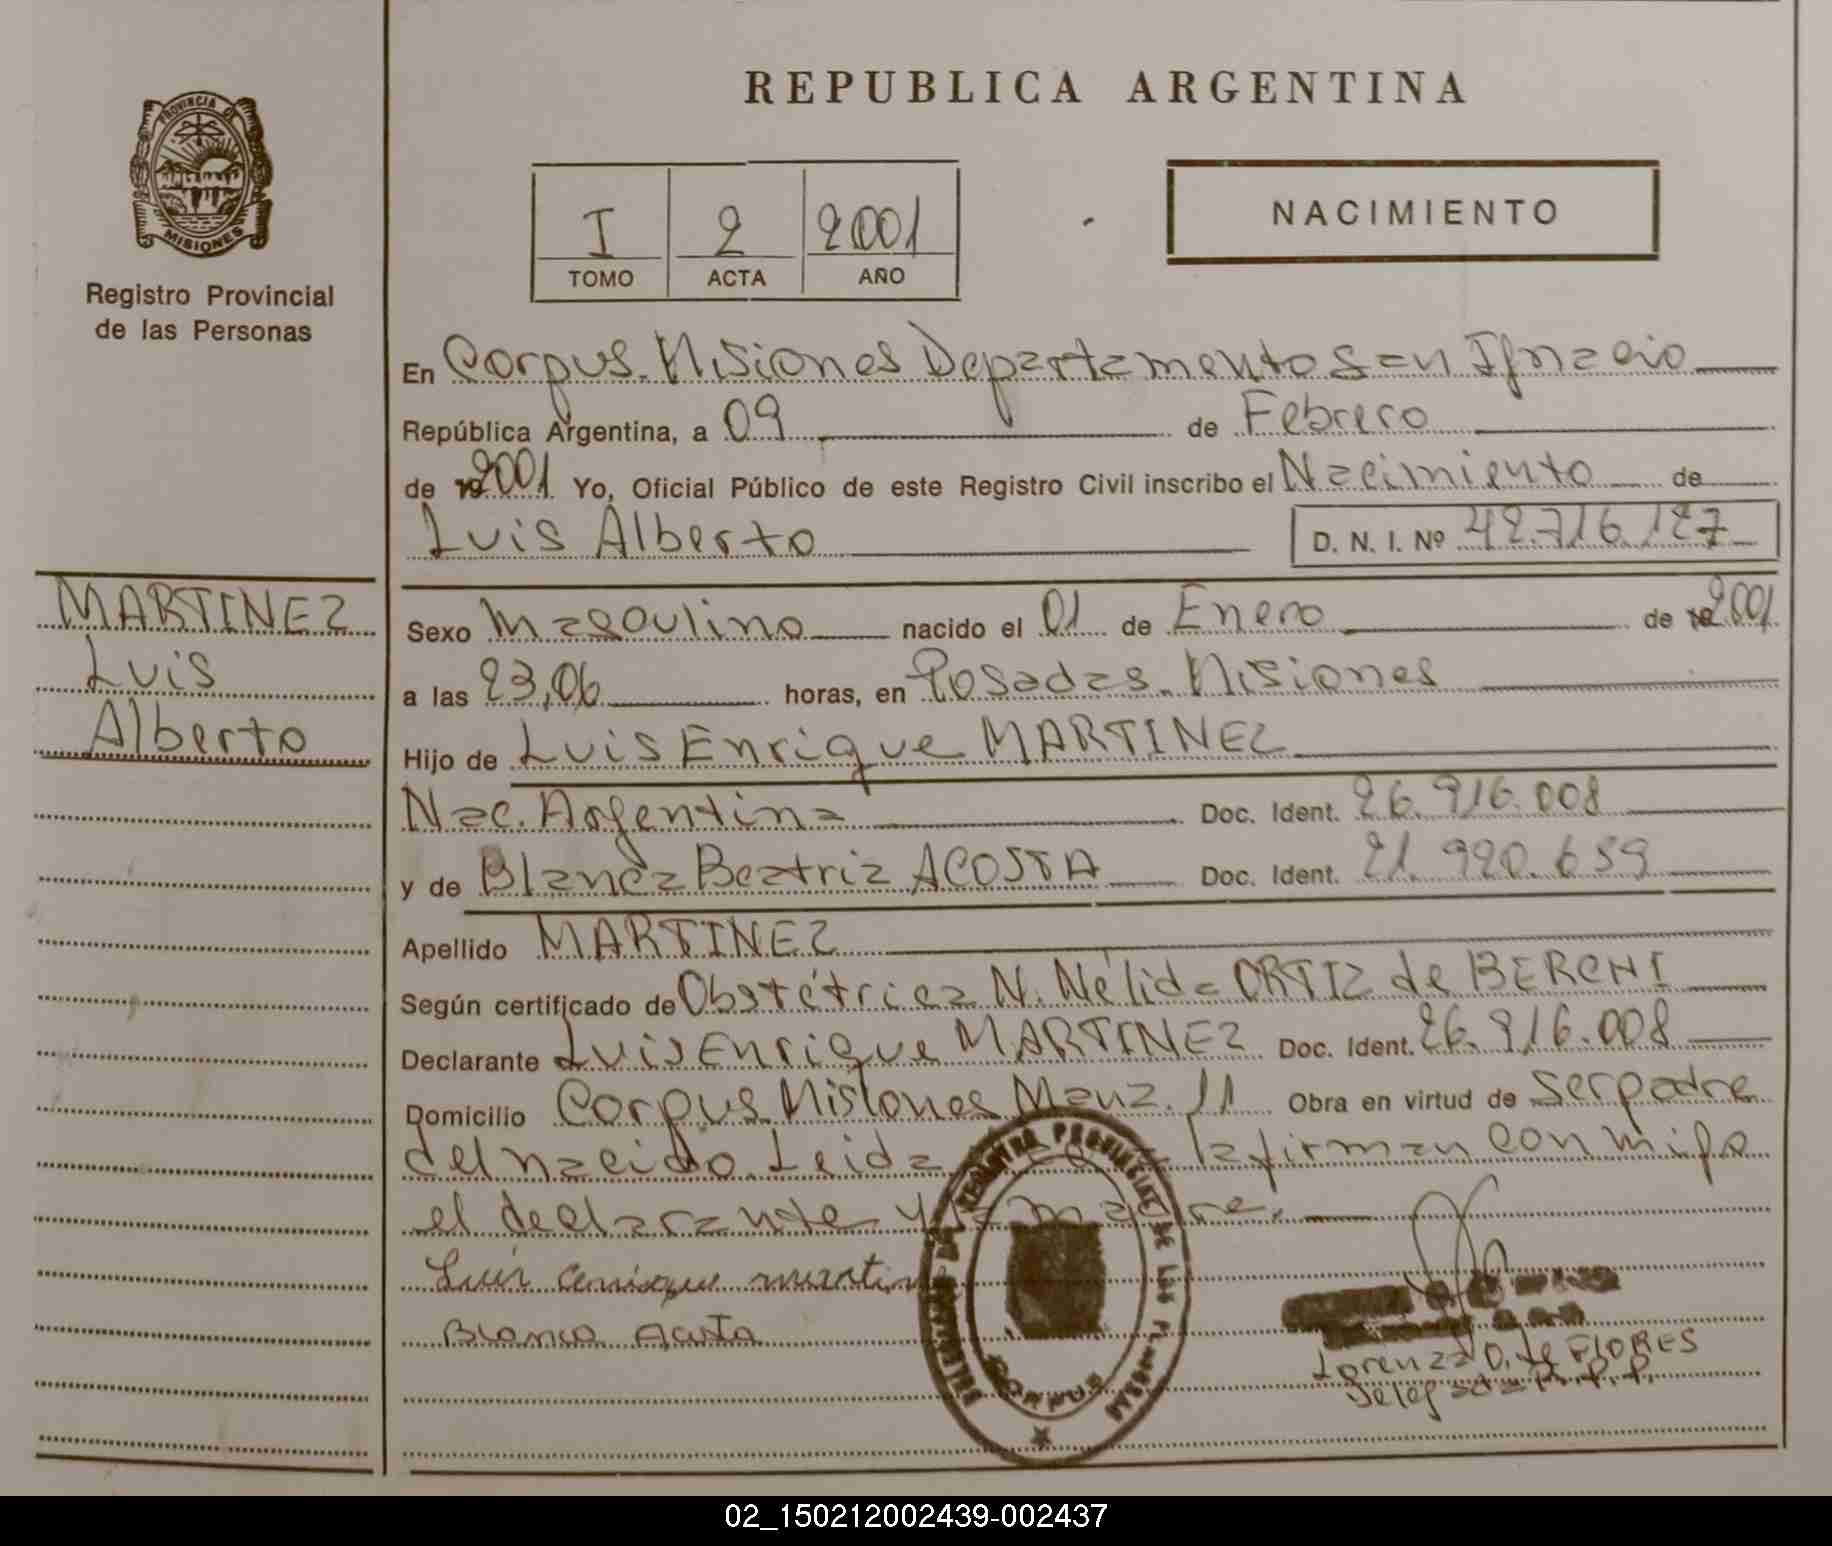 REPUBLICA ARGENTINA
PROVINCIA DE
MISIONES
Registro Provincial
de las Personas
I 2 2001
TOMO ACTA AÑO
NACIMIENTO
En Corpus. Misiones Departamento San Ignacio
República Argentina, a 09 de Febrero
de 2001 Yo, Oficial Público de este Registro Civil inscribo el Nacimiento de
Luis Alberto D. N. I. Nº 42.716.127
MARTINEZ
Luis
Alberto
Sexo Masculino nacido el 01 de Enero de 2001
a las 23,06 horas, en Posadas. Misiones
Hijo de Luis Enrique MARTINEZ
Nac. Argentina Doc. Ident. 26.916.008
y de Blanca Beatriz ACOSTA Doc. Ident. 21.920.659
Apellido MARTINEZ
Según certificado de Obstétrica N. Nélida ORTIZ de BERCHI
Declarante Luis Enrique MARTINEZ Doc. Ident. 26.916.008
Domicilio Corpus Misiones Manz. 11 Obra en virtud de ser padre
del nacido. Leida la firman conmigo
el declarante y la madre.
Luis enrique martin
Blanca Acosta
REGISTRO PROVINCIAL DE LAS PERSONAS
CORPUS
Lorenza D. de FLORES
Delegada R.P.P.
02_150212002439-002437